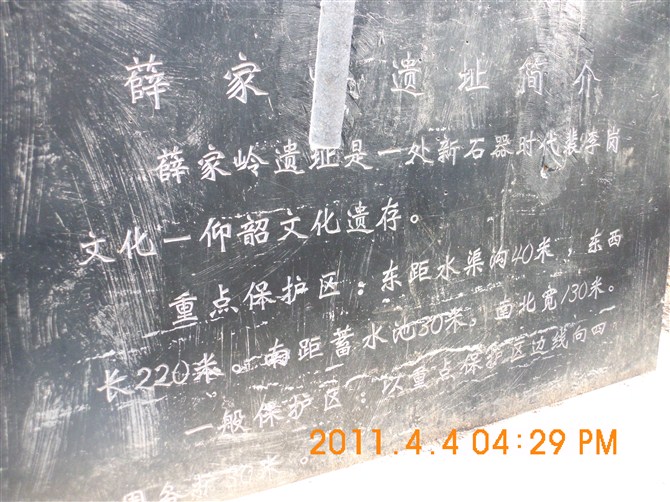 薛家 遗址简介
薛家岭遗址是一处新石器时代裴李岗
文化一仰韶文化遗存。
重点保护区：东距水渠沟40米，东西
长220米。南距蓄水池30米，南北宽130米。
一般保护区：以重点保护区边线向四
周各扩50米。
2011.4.4 04:29 PM